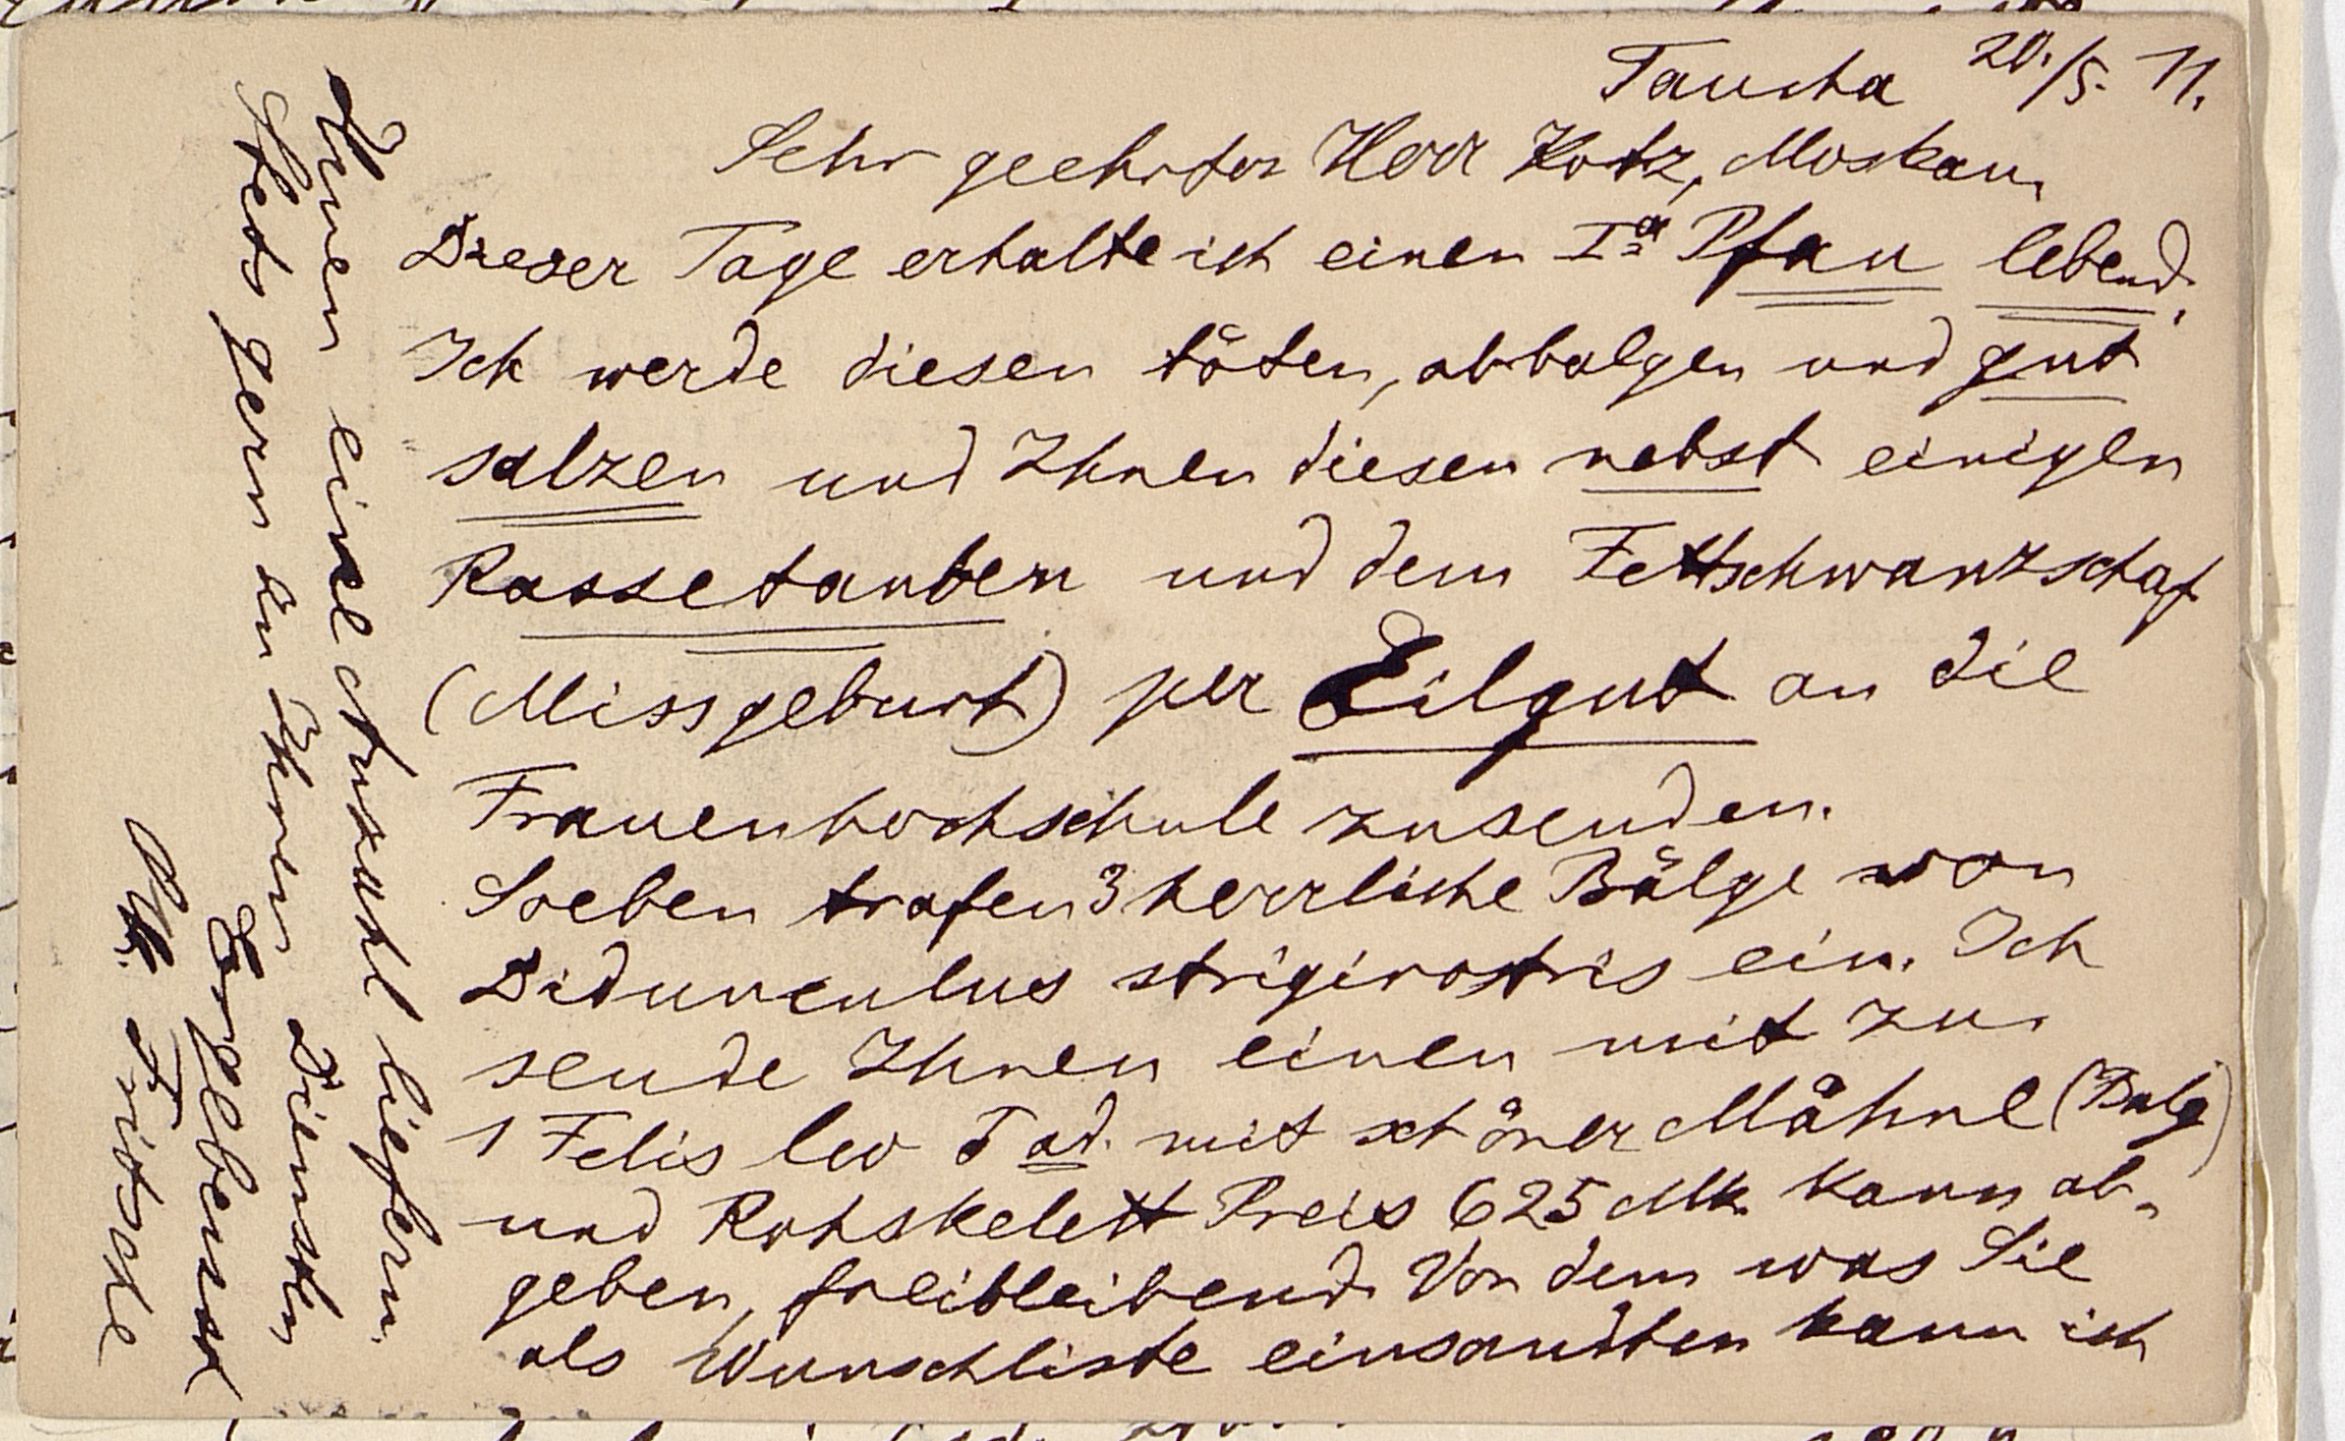 Taucha 20./5. 11.
Sehr geehrter Herr Kotz, Moskau.
Dieser Tage erhalte ich einen Ia Pfau lebend.
Ich werde diesen töten, abbalgen und gut
salzen und Ihnen diesen nebst einigen
Rassetauben und dem Fettschwanzschaf
(Missgeburt) per Eilgut an die
Frauenhochschule zusenden.
Soeben trafen 3 herrliche Bälge von
Didunculus strigirostris ein. Ich
sende Ihnen einen mit zu.
1 Felis leo ad. mit schöner Mähne (Balg)
und Rohskelett Preis 625 Mk. kann ab-
geben, freibleibend. Von dem was Sie
als Wunschliste einsandten kann ich
Ihnen eine Anzahl liefern.
Stets gern zu Ihren Diensten
Ergebenst
Fritsche